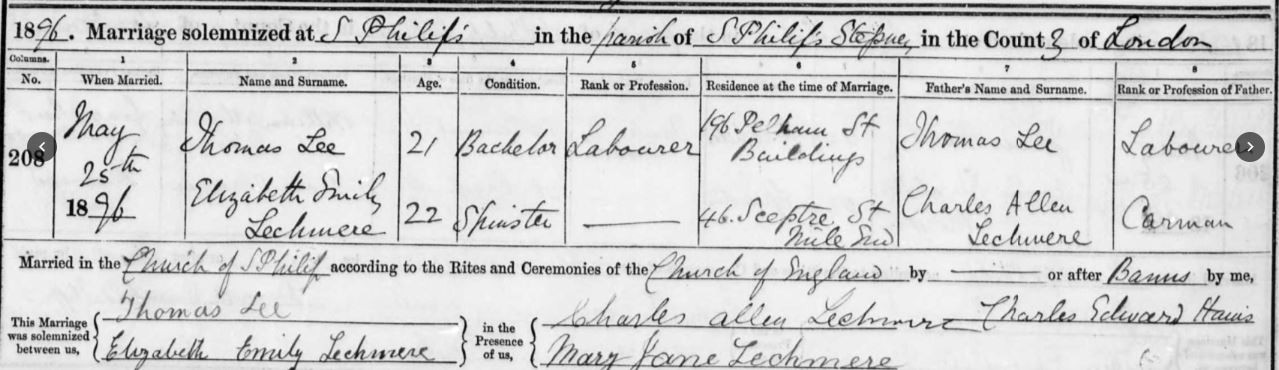 1896. Marriage solemnized at S Philip's in the parish of S Philip's Stepney in the County of London
Columns. 1 2 3 4 5 6 7 8
No. When Married. Name and Surname. Age. Condition. Rank or Profession. Residence at the time of Marriage. Father's Name and Surname. Rank or Profession of Father.
208 May 25th 1896 Thomas Lee 21 Bachelor Labourer 196 Pelham St Buildings Thomas Lee Labourer
Elizabeth Emily Lechmere 22 Spinster 46 Sceptre St Mile End Charles Allen Lechmere Carman
Married in the Church of S Philip according to the Rites and Ceremonies of the Church of England by or after Banns by me,
This Marriage was solemnized between us, Thomas Lee in the Presence of us, Charles allen Lechmere Charles Edward
Elizabeth Emily Lechmere Mary Jane Lechmere